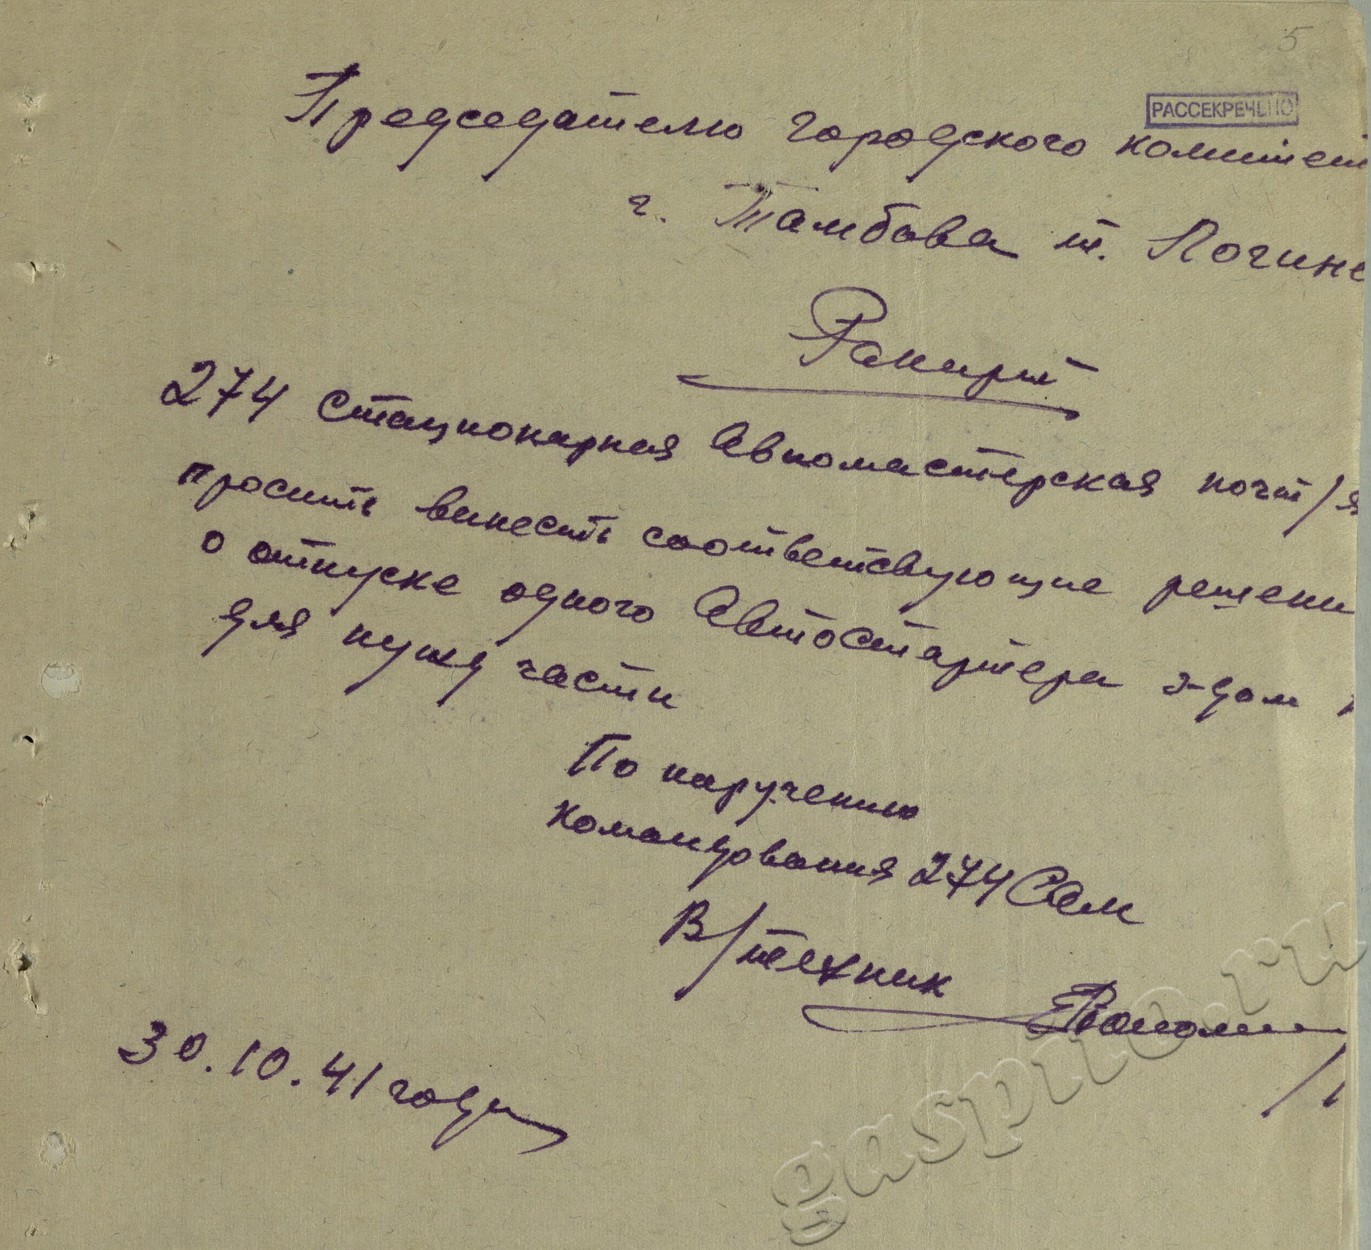 5
РАССЕКРЕЧЕНО
Председателю городского комитет
г. Тамбова т. Логино
Рапорт
274 Стационарная Автомастерская почт/я
просить вынесть соответствующие решени
о отпуске одного Автостартера з-дом
для нужд части
По поручению
командования 274 САМ
В/техник
30.10.41 года
gaspito.ru